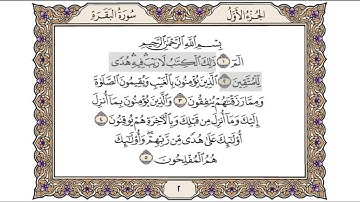 الجزء الأول
سورة البقرة
بسم الله الرحمن الرحيم
الٓمٓ ۝١ ذَٰلِكَ ٱلْكِتَٰبُ لَا رَيْبَ ۛ فِيهِ ۛ هُدًى
لِّلْمُتَّقِينَ ۝٢ ٱلَّذِينَ يُؤْمِنُونَ بِٱلْغَيْبِ وَيُقِيمُونَ ٱلصَّلَوٰةَ
وَمِمَّا رَزَقْنَٰهُمْ يُنفِقُونَ ۝٣ وَٱلَّذِينَ يُؤْمِنُونَ بِمَآ أُنزِلَ
إِلَيْكَ وَمَآ أُنزِلَ مِن قَبْلِكَ وَبِٱلْءَاخِرَةِ هُمْ يُوقِنُونَ ۝٤
أُو۟لَٰٓئِكَ عَلَىٰ هُدًى مِّن رَّبِّهِمْ ۖ وَأُو۟لَٰٓئِكَ
هُمُ ٱلْمُفْلِحُونَ ۝٥
٢